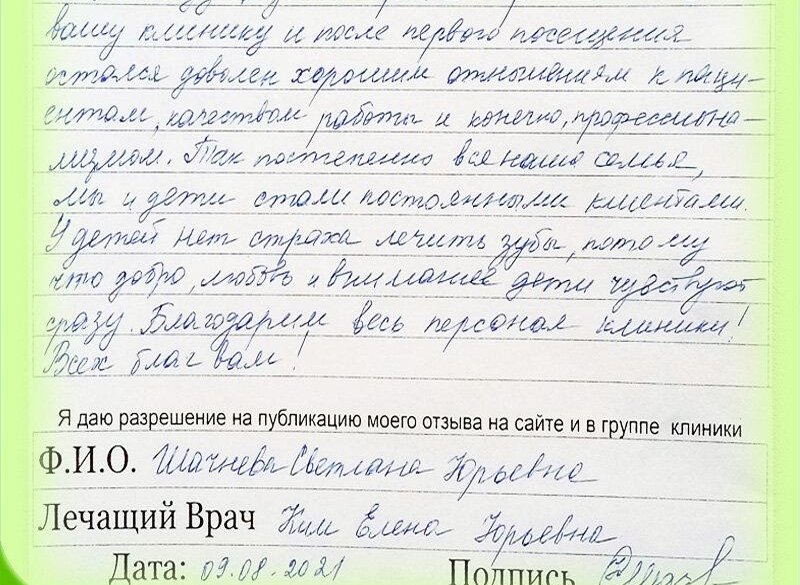 вашу клинику и после первого посещения
остался доволен хорошим отношениям к паци-
ентам, качеством работы и конечно, профессиона-
лизмом. Так постепенно вся наша семья,
мы и дети стали постоянными клиентами.
У детей нет страха лечить зубы, потому
что добро, любовь и внимание дети чувствуют
сразу. Благодарим весь персонал клиники!
Всех благ вам!
Я даю разрешение на публикацию моего отзыва на сайте и в группе клиники
Ф.И.О. Шачнева Светлана Юрьевна
Лечащий Врач Ким Елена Юрьевна
Дата: 09.08.2021 Подпись